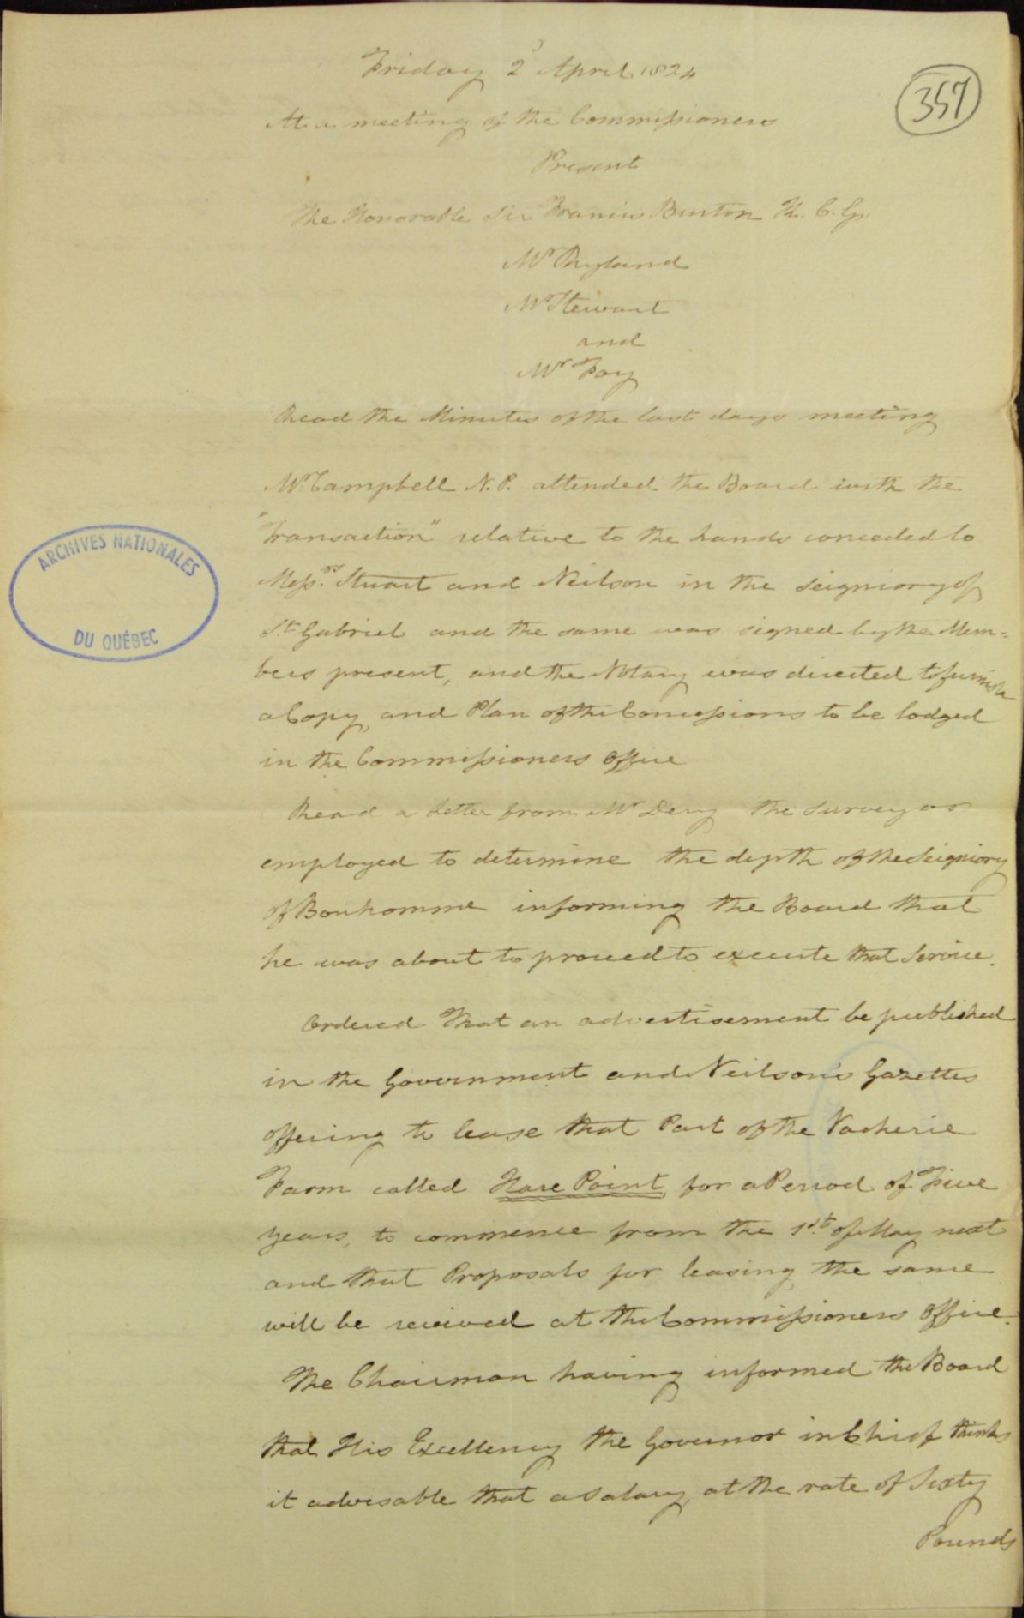 Friday 2d April 1824
357
At a meeting of the Commissioners
Present
The Honorable Sir Francis Burton K. C. G.
Mr Ryland
Mr Stewart
and
Mr Foy
Read the Minutes of the last days meeting
Mr Campbell N.P. attended the Board with the
"Transaction" relative to the Lands conceded to
Messrs Stuart and Neilson in the Seigniory of
St Gabriel and the same was signed by the Mem=
bers present, and the Notary was directed to furnish
a Copy, and Plan of the Concessions to be lodged
in the Commissioners Office
Read a Letter from Mr Dery the Surveyor
employed to determine the depth of the Seigniory
of Bonhomme informing the Board that
he was about to proceed to execute that Service.
Ordered That an advertisement be published
in the Government and Neilson's Gazettes
offering to lease that Part of the Vacherie
Farm called Hare Point for a Period of Five
years, to commence from the 1st of May next
and that Proposals for leasing the same
will be received at the Commissioners Office.
The Chairman having informed the Board
that His Excellency the Governor in Chief thinks
it advisable that a Salary, at the rate of Sixty
Pounds
ARCHIVES NATIONALES
DU QUÉBEC